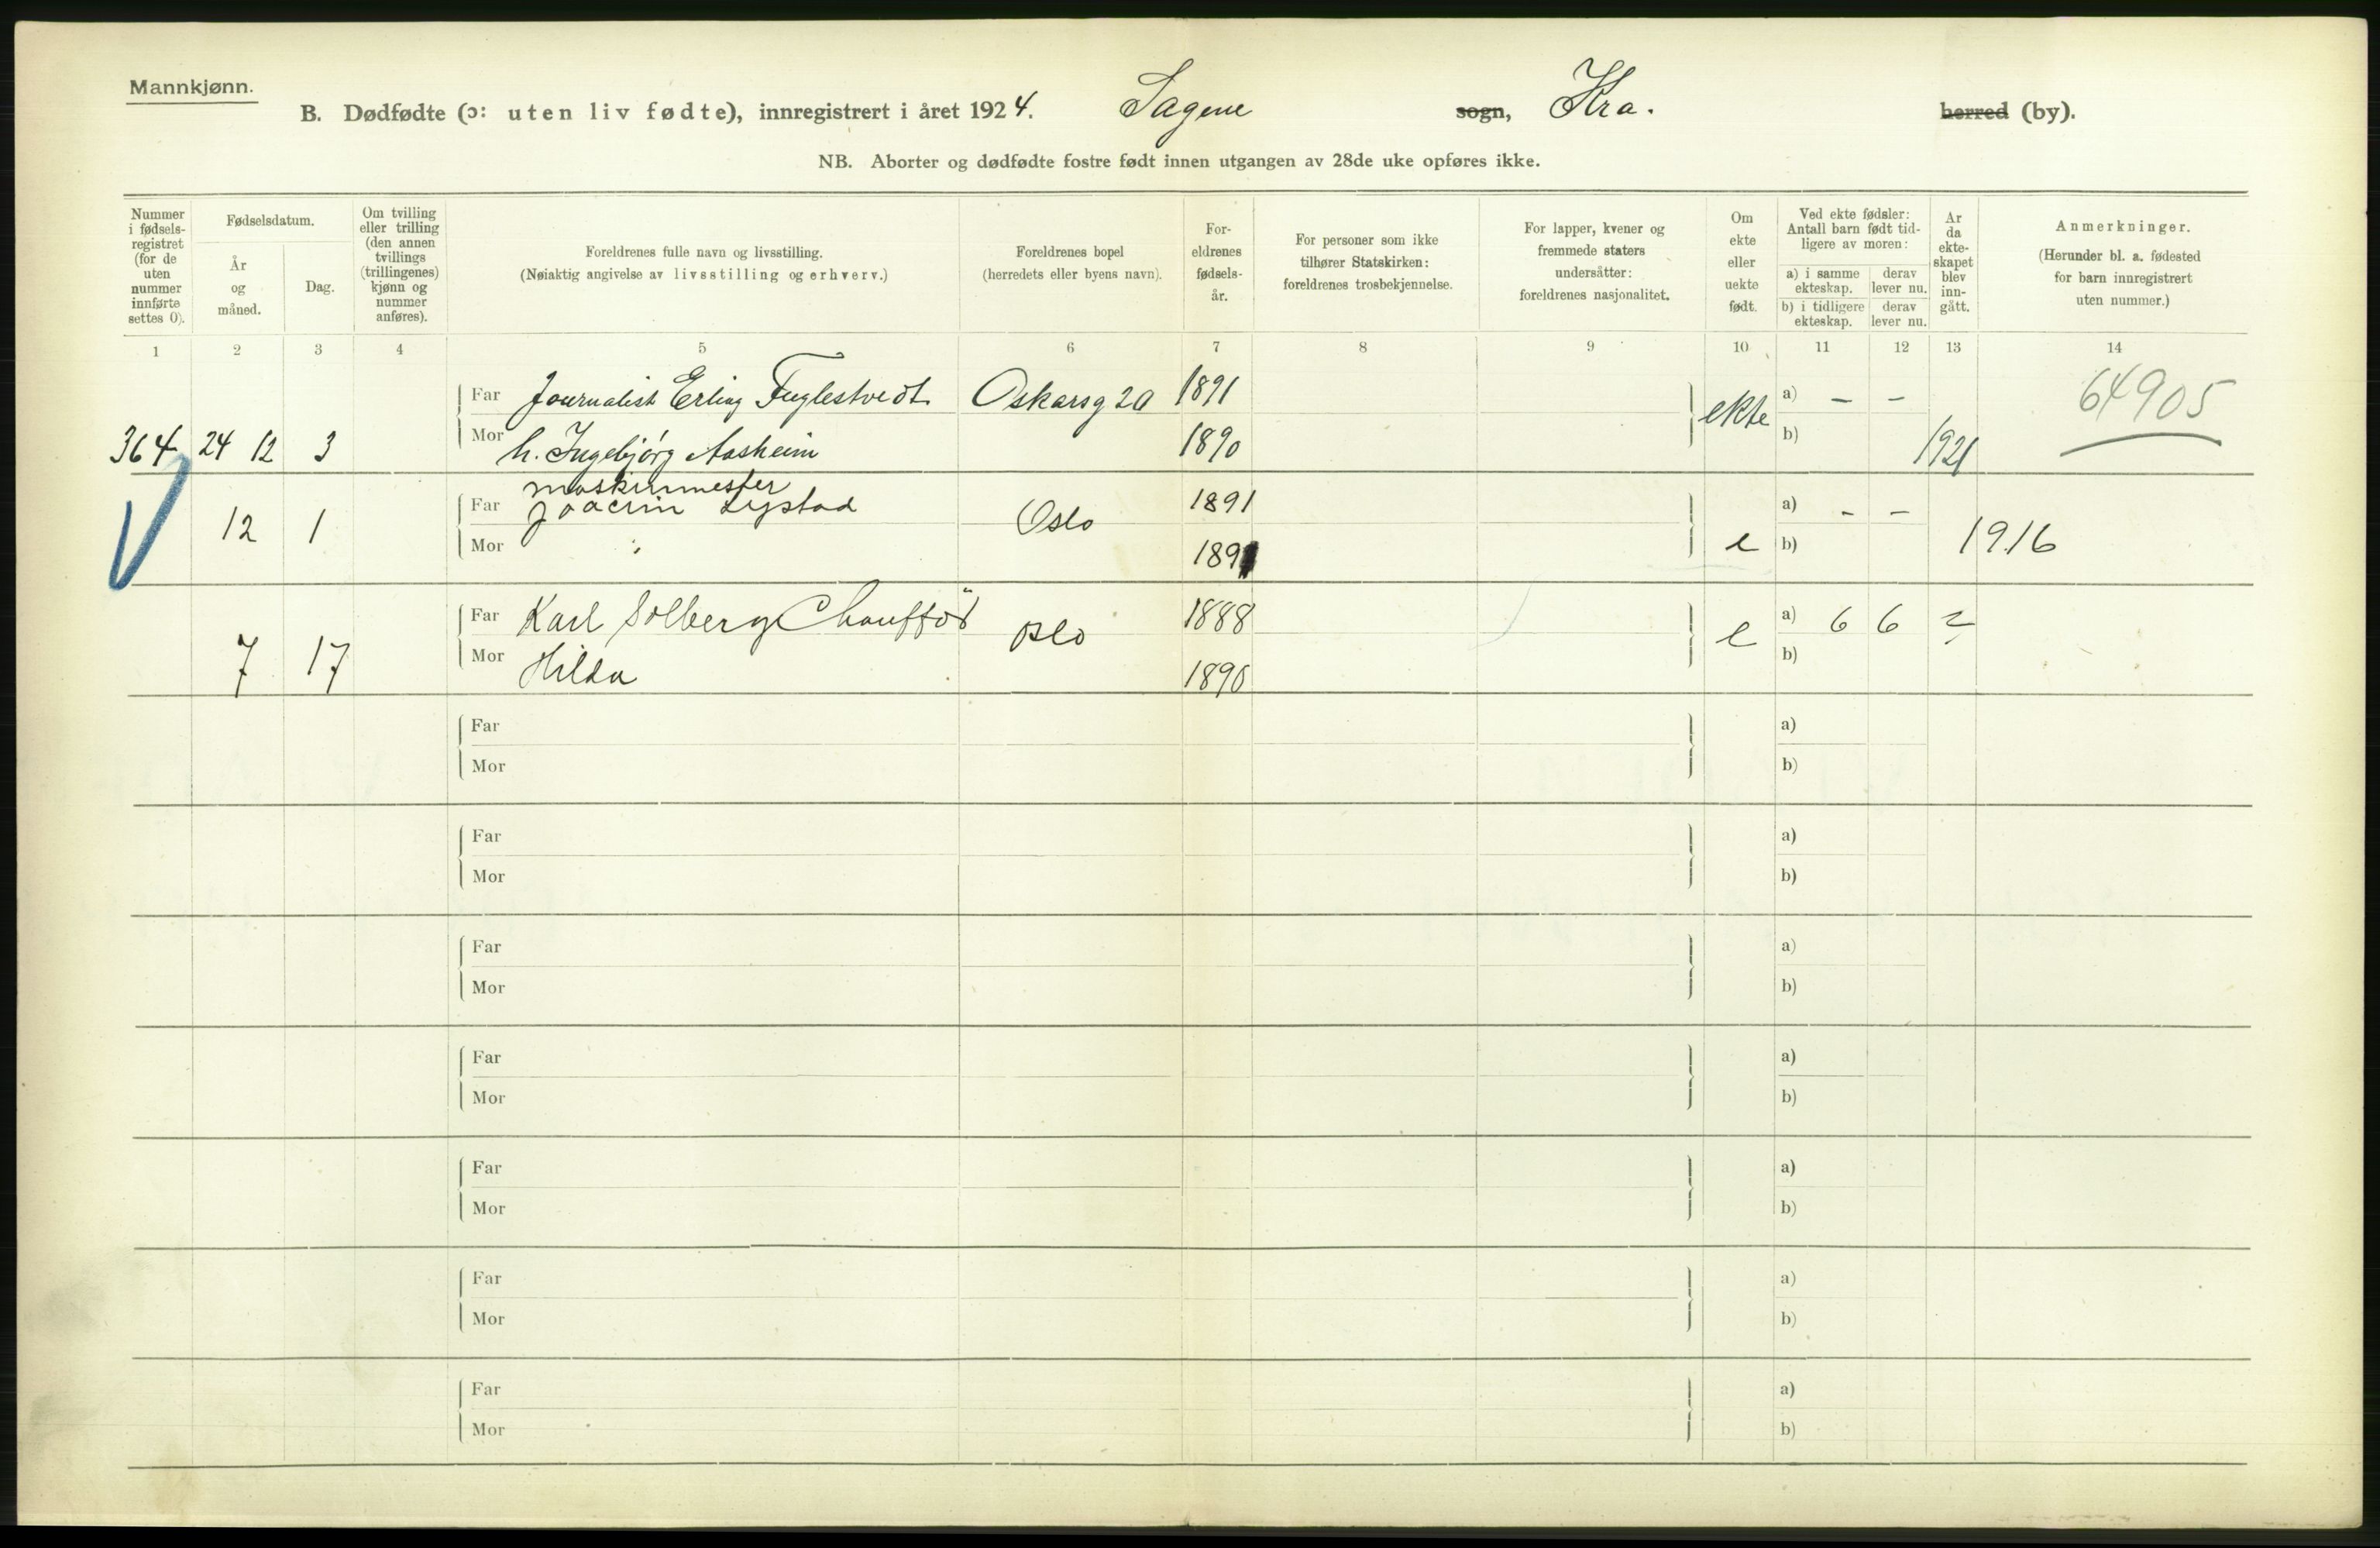 Mannkjønn.
B. Dødfødte (ɔ: uten liv fødte), innregistrert i året 1924. Sagene sogn, Kra. herred (by).
NB. Aborter og dødfødte fostre født innen utgangen av 28de uke opføres ikke.
Nummer i fødsels-registret (for de uten nummer innførte settes 0).
Fødselsdatum.
År og måned.
Dag.
Om tvilling eller trilling (den annen tvillings (trillingenes) kjønn og nummer anføres).
Foreldrenes fulle navn og livsstilling.
(Nøiaktig angivelse av livsstilling og erhverv.)
Foreldrenes bopel
(herredets eller byens navn).
For-eldrenes fødsels-år.
For personer som ikke tilhører Statskirken: foreldrenes trosbekjennelse.
For lapper, kvener og fremmede staters undersåtter: foreldrenes nasjonalitet.
Om ekte eller uekte født.
Ved ekte fødsler: Antall barn født tid-ligere av moren:
a) i samme ekteskap. derav lever nu.
b) i tidligere ekteskap. derav lever nu.
År da ekte-skapet blev inn-gått.
Anmerkninger.
(Herunder bl. a. fødested for barn innregistrert uten nummer.)
1 2 3 4 5 6 7 8 9 10 11 12 13 14
Far Journalist Erling Fuglestvedt Oskarsg 20 1891 ekte a) – – 64905
364 24 12 3 Mor h. Ingebjörg Aasheim 1890 b) 1921
maskinmester
Far Joacim Lystad Oslo 1891 a) – –
12 1 Mor " 1891 e b) 1916
Far Karl Solberg Chaufför Oslo 1888 e a) 6 6 ?
7 17 Mor Hilda 1890 b)
Far a)
Mor b)
Far a)
Mor b)
Far a)
Mor b)
Far a)
Mor b)
Far a)
Mor b)
Far a)
Mor b)
Far a)
Mor b)